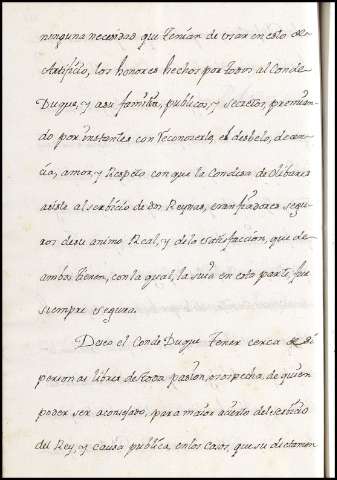 ninguna necesidad que tenian de usar en esto de
Artificio, los honores hechos por todos al Conde
Duque, y a su familia, publicos, y secretos, premian
do por instantes con reconoserle, el desbelo, decen
cia, amor, y Respeto con que la Condesa de Olibares
asiste al serbicio de dos Reynas, eran fiadores segu
ros de su animo Real, y de la satisfaccion, que de
ambos tienen, con la qual, la suia en esta parte, fue
siempre segura.
Deseo el Conde Duque tener cerca de si
personas libres de toda pasion, o sospecha, de quien
poder ser aconsejado, para maior acierto del serbicio
del Rey, y causa publica, en los casos, que su dictamen